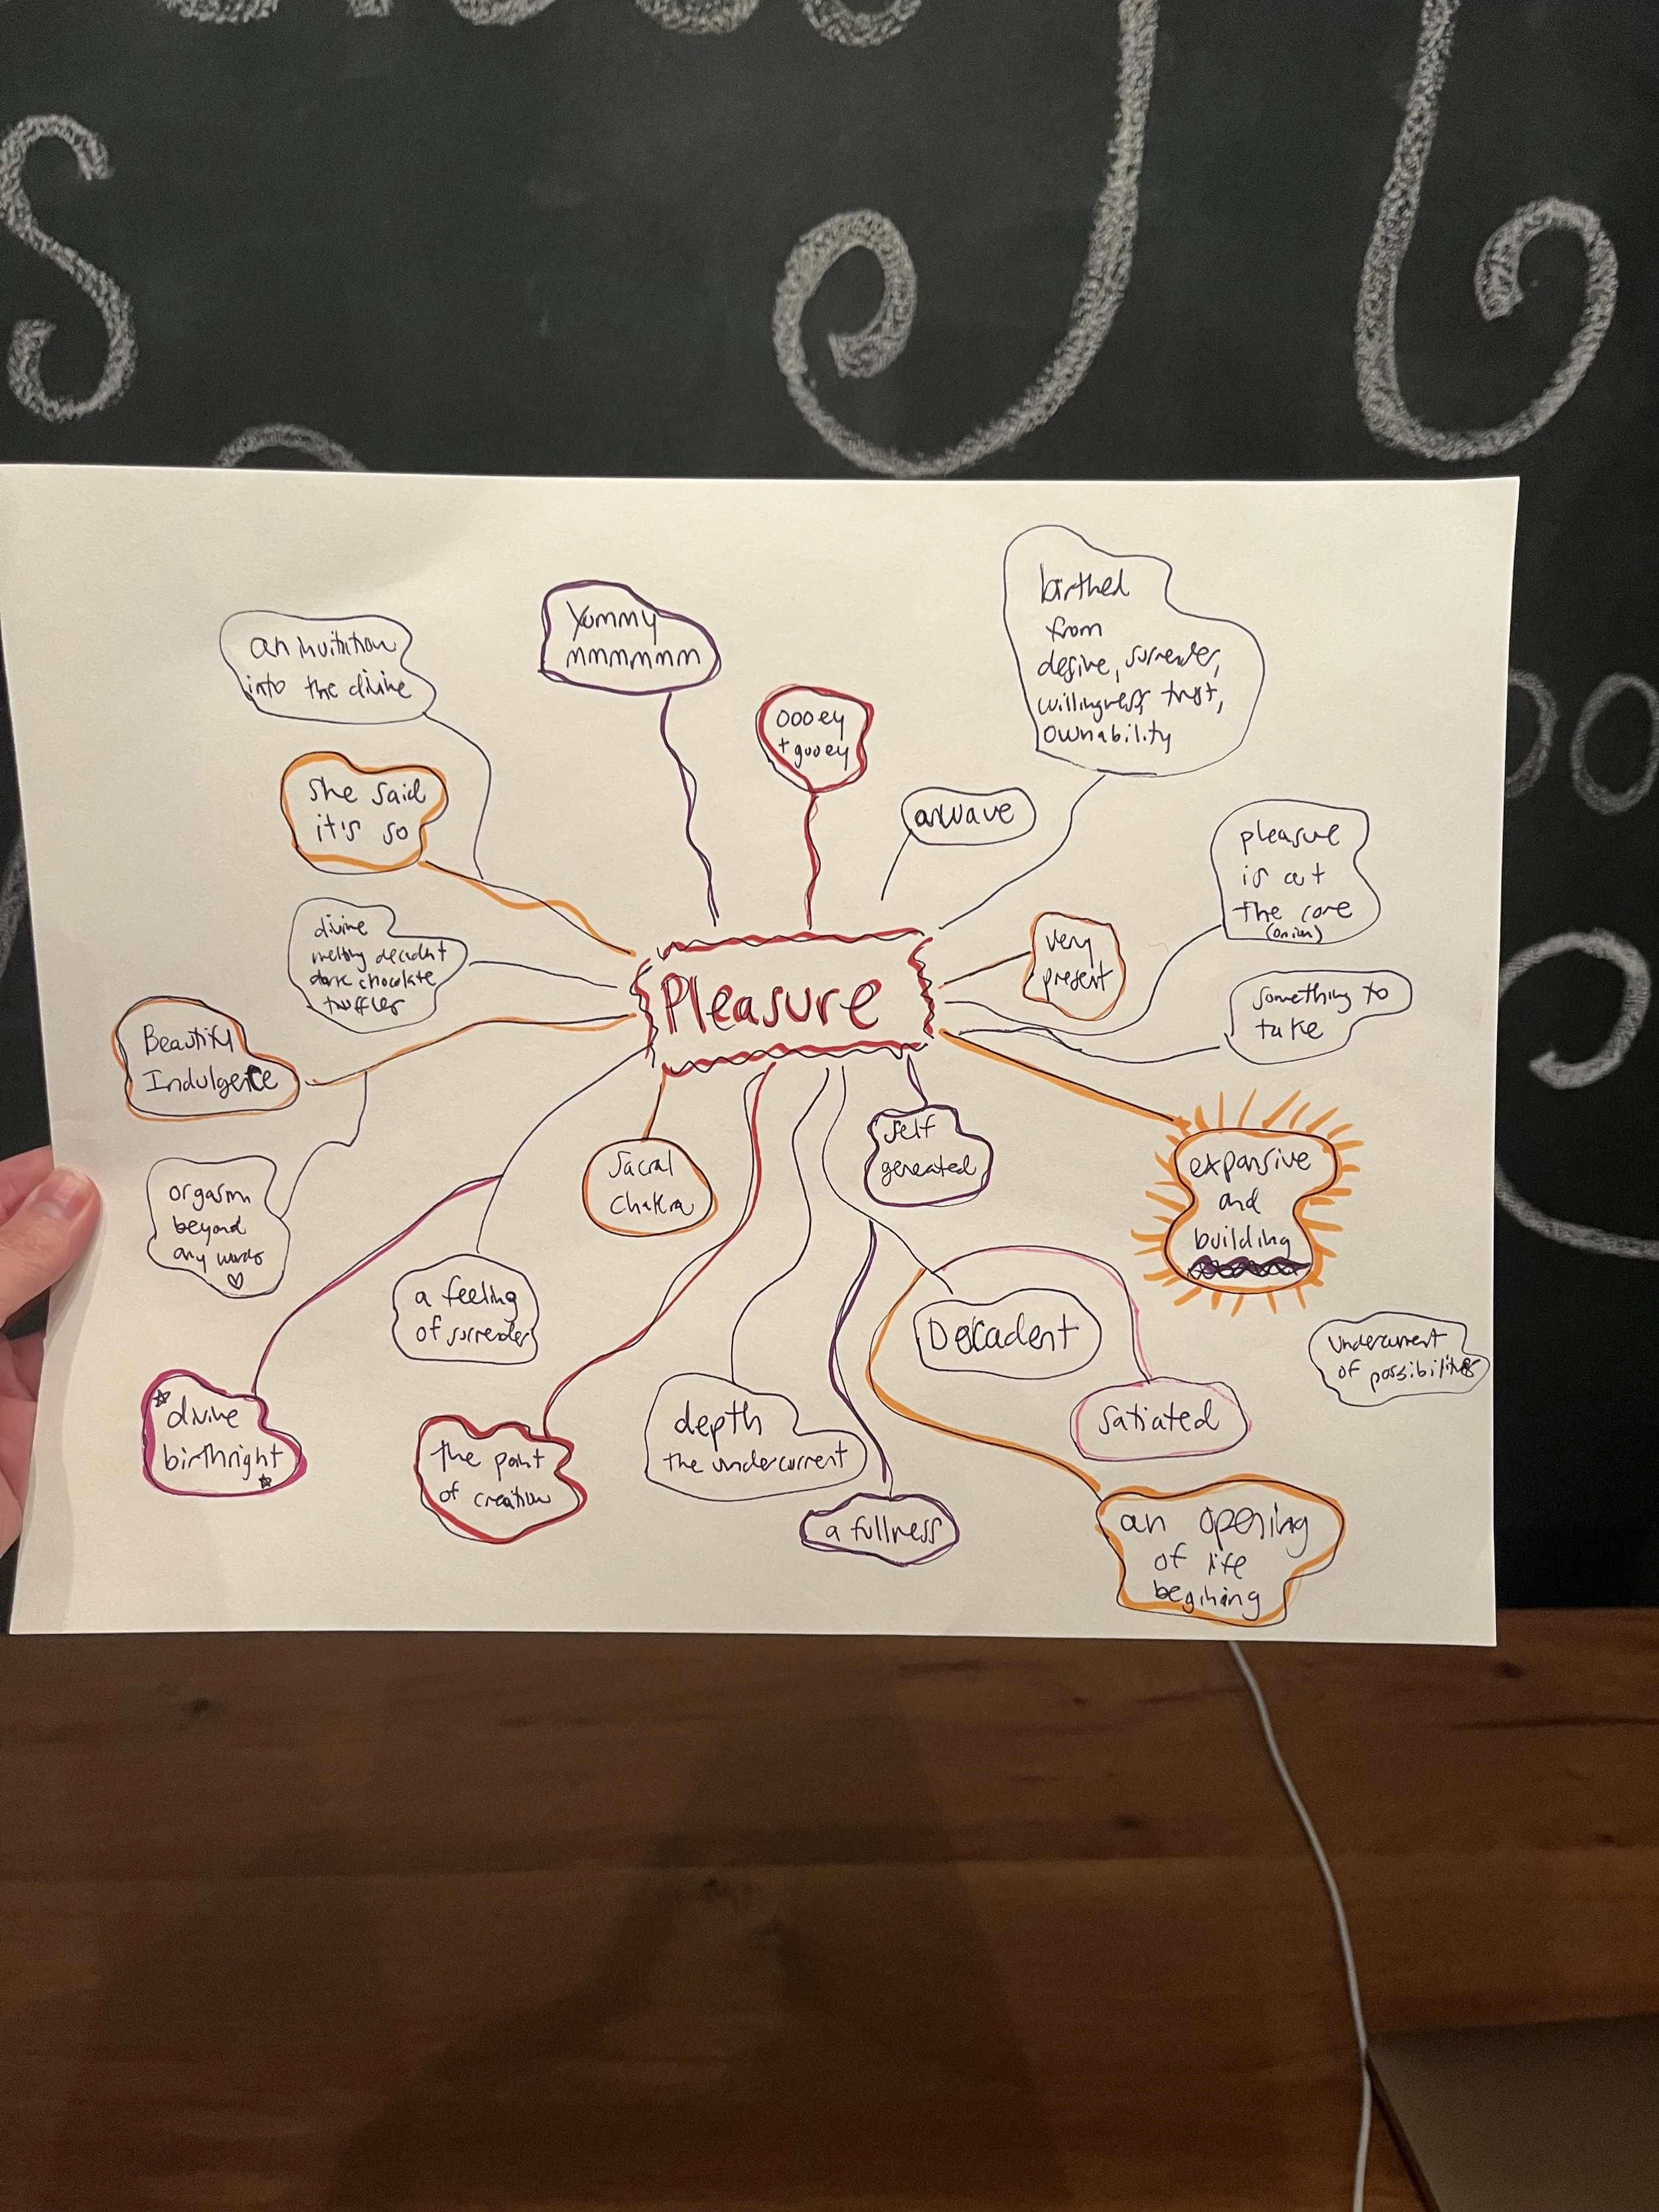 an invitation
into the divine
Yummy
mmmmmm
oooey
+ gooey
birthed
from
desire, surrender,
willingness, trust,
ownability
she said
it's so
a wave
pleasure
is at
the core
(onion)
divine
melting decadent
dark chocolate
truffles
very
present
something to
take
Pleasure
Beautiful
Indulgence
self
generated
sacral
chakra
expansive
and
building
orgasm
beyond
any words
a feeling
of surrender
Decadent
undercurrent
of possibilities
divine
birthright
the point
of creation
depth
the undercurrent
satiated
a fullness
an opening
of life
begining